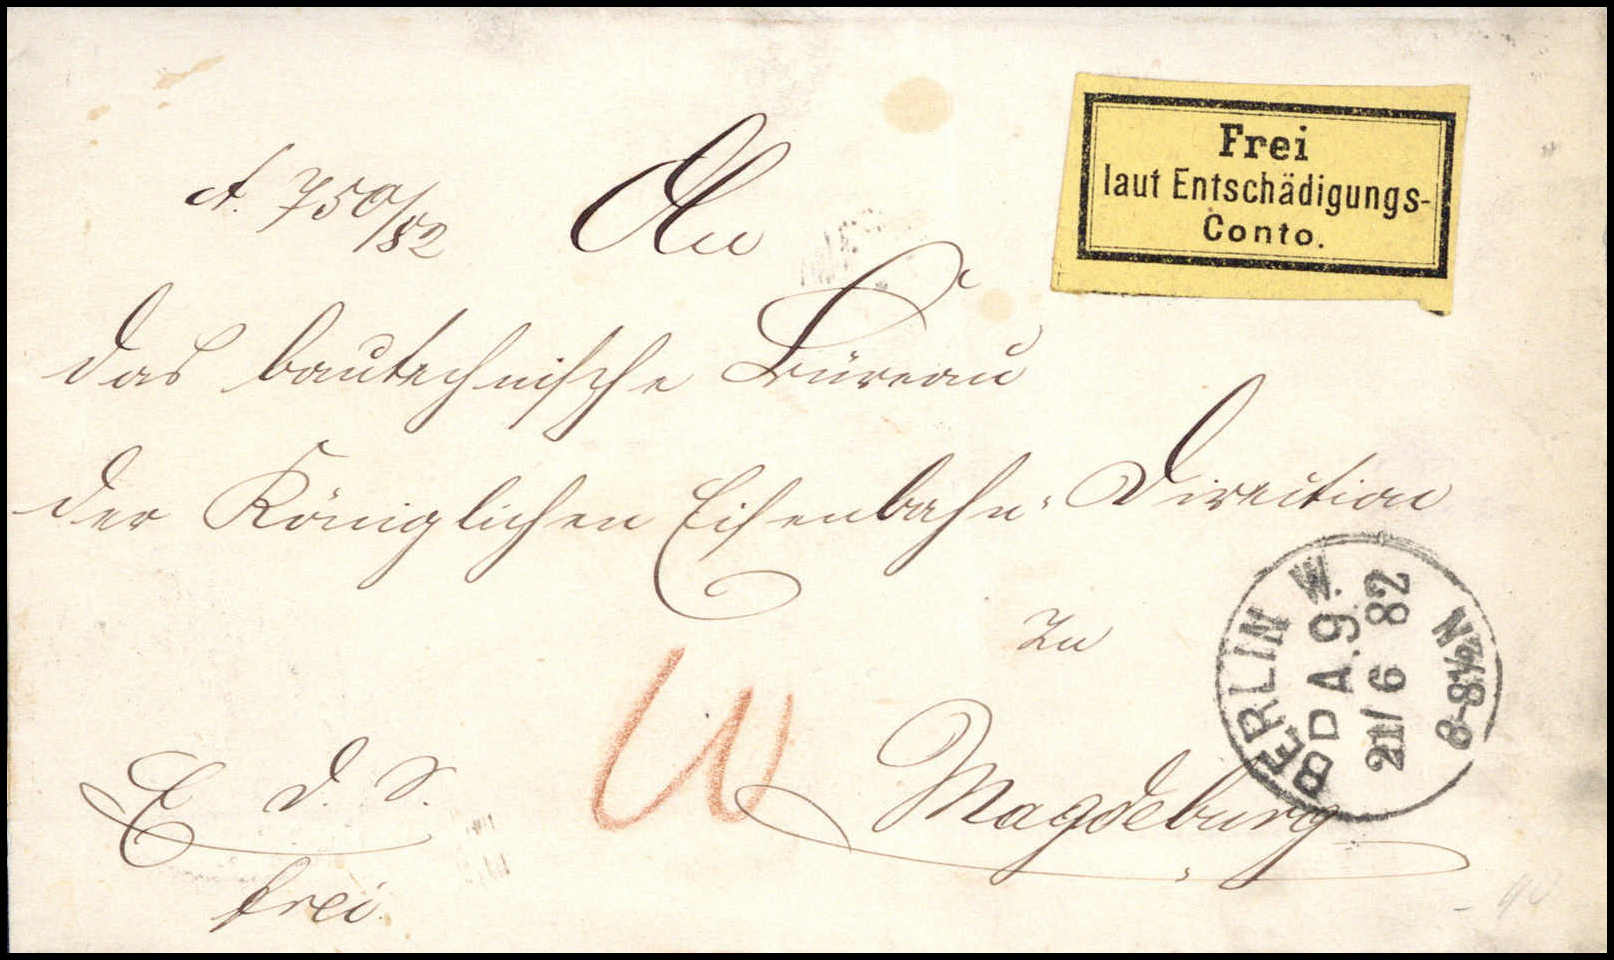 Frei
laut Entschädigungs-
Conto.
A. 750/82
An
das bautechnische Büreau
der Königlichen Eisenbahn-Direction
zu
Magdeburg
E. d. S.
frei
BERLIN W.
P.A.9.
21/6 82
8-8½N